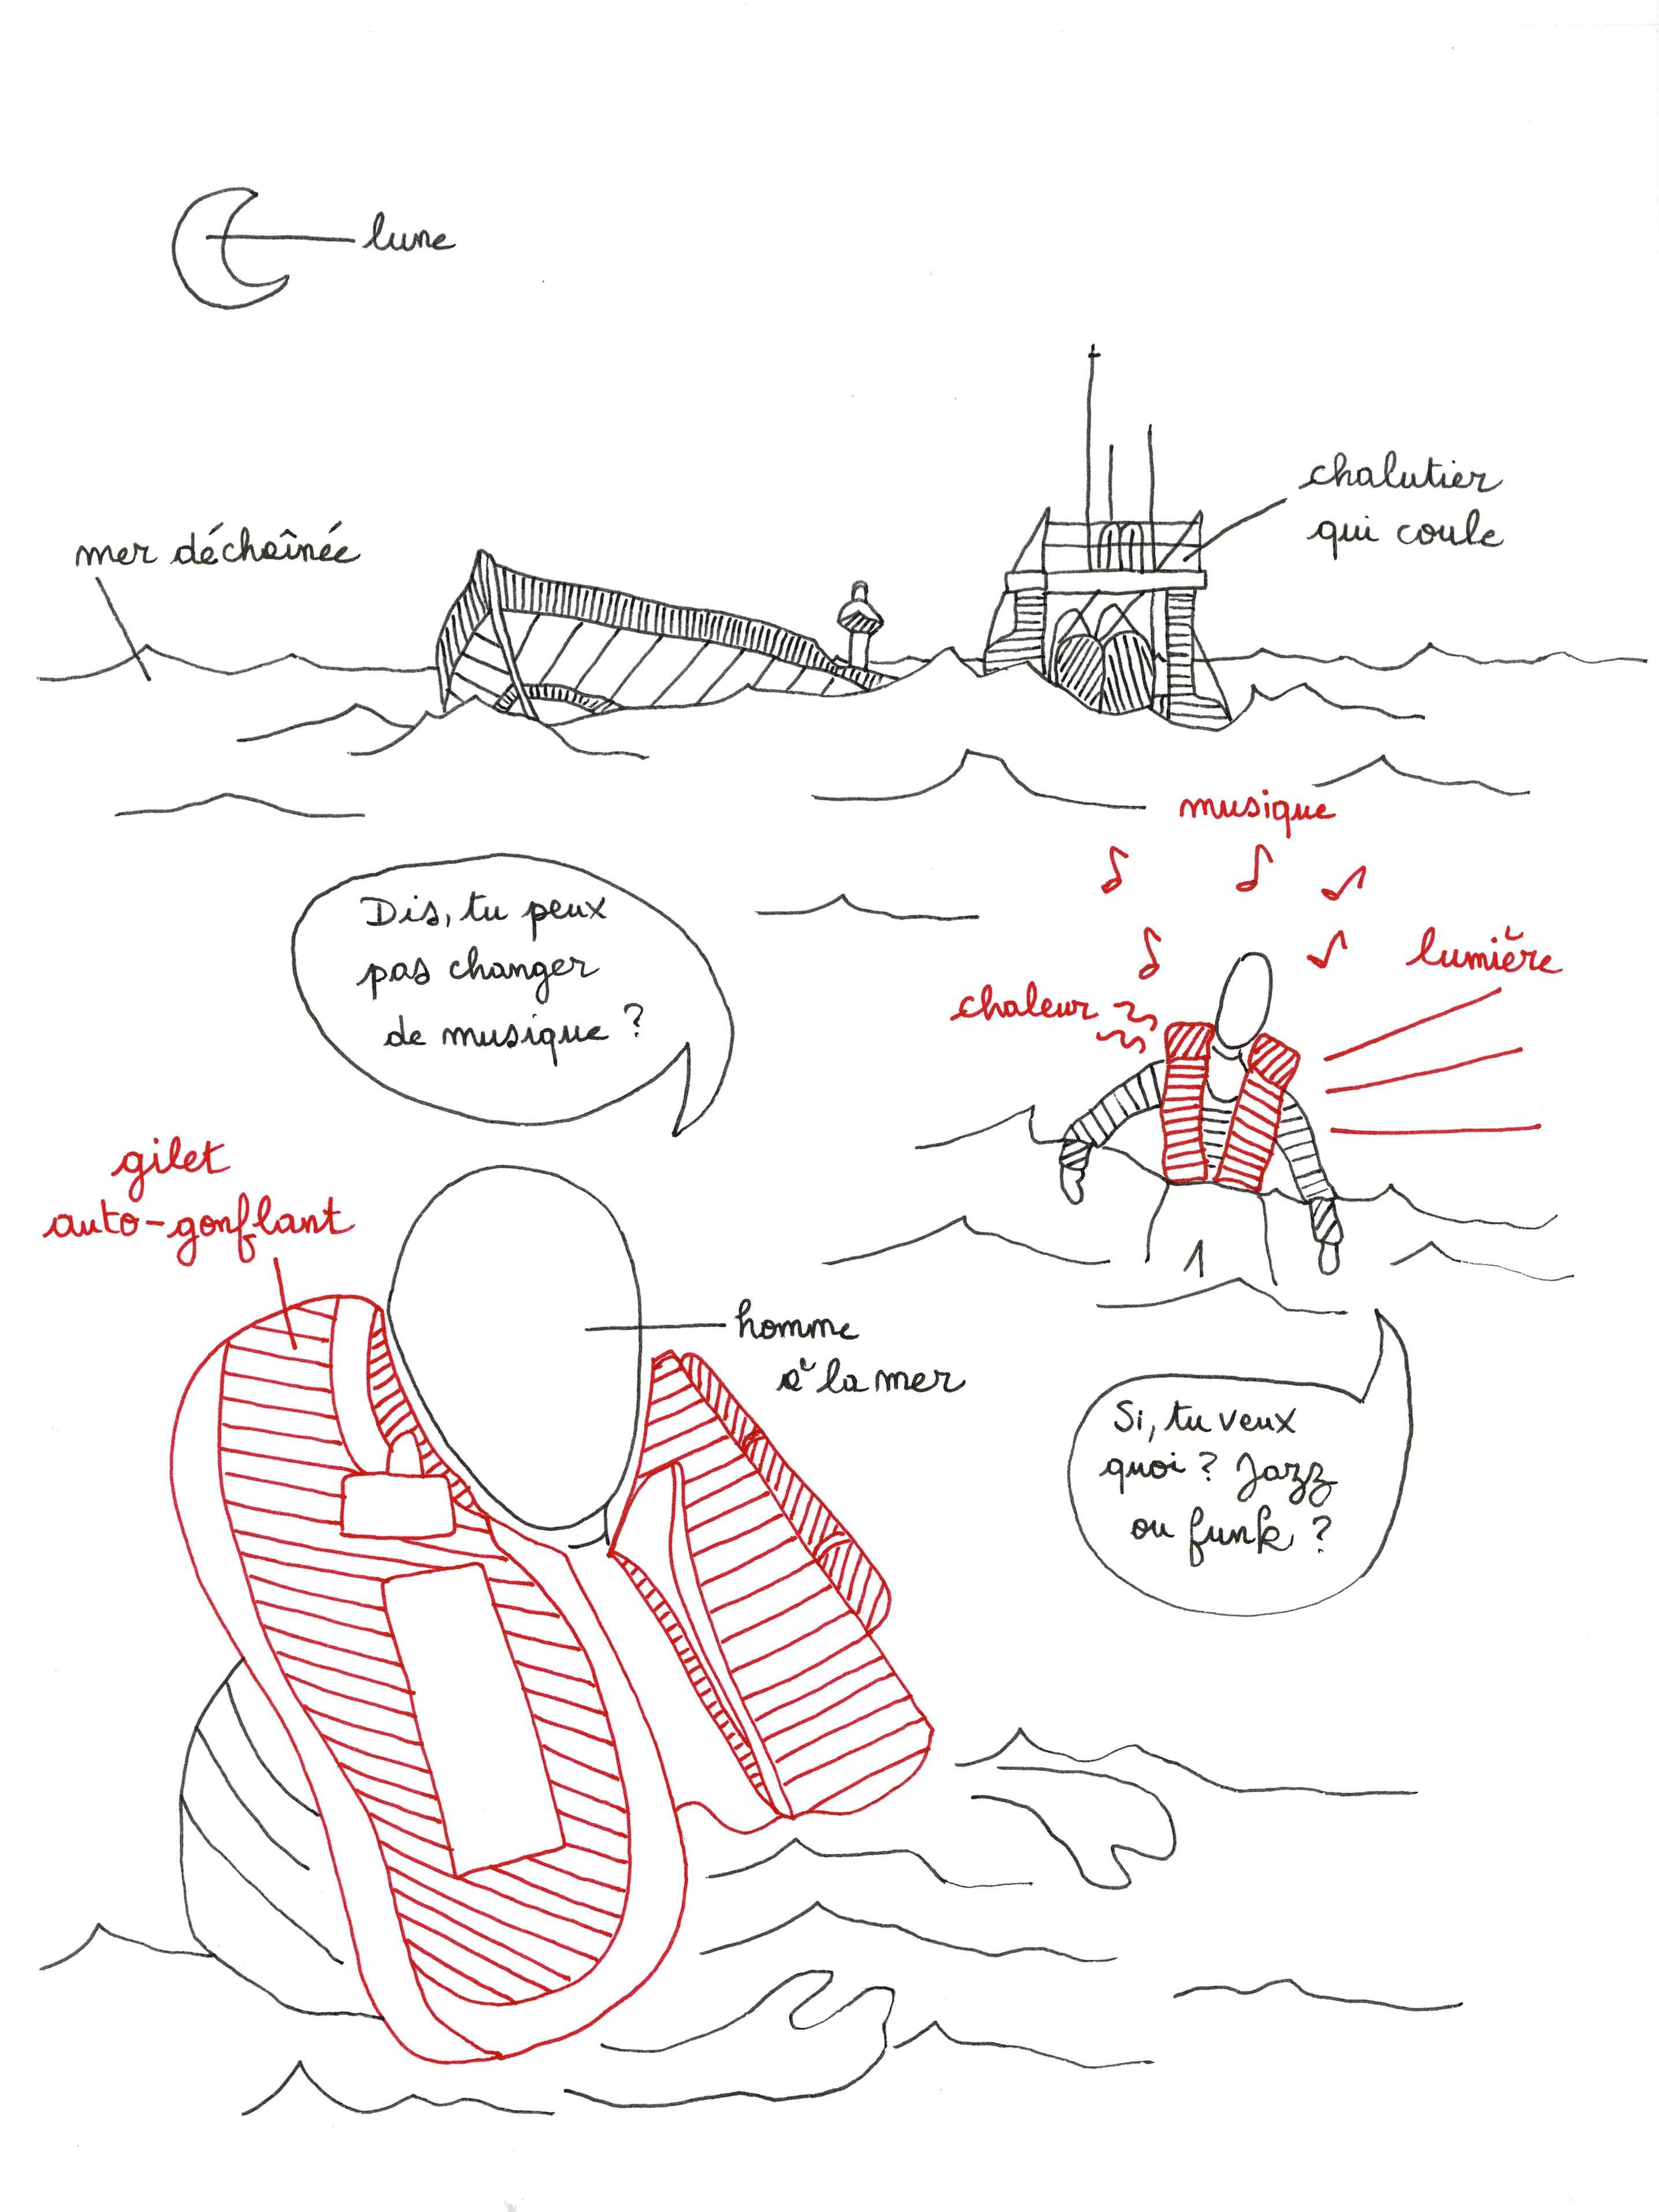 lune
chalutier
qui coule
mer déchaînée
musique
Dis, tu peux
pas changer
de musique ?
lumière
chaleur
gilet
auto-gonflant
homme
à la mer
Si, tu veux
quoi ? Jazz
ou funk ?